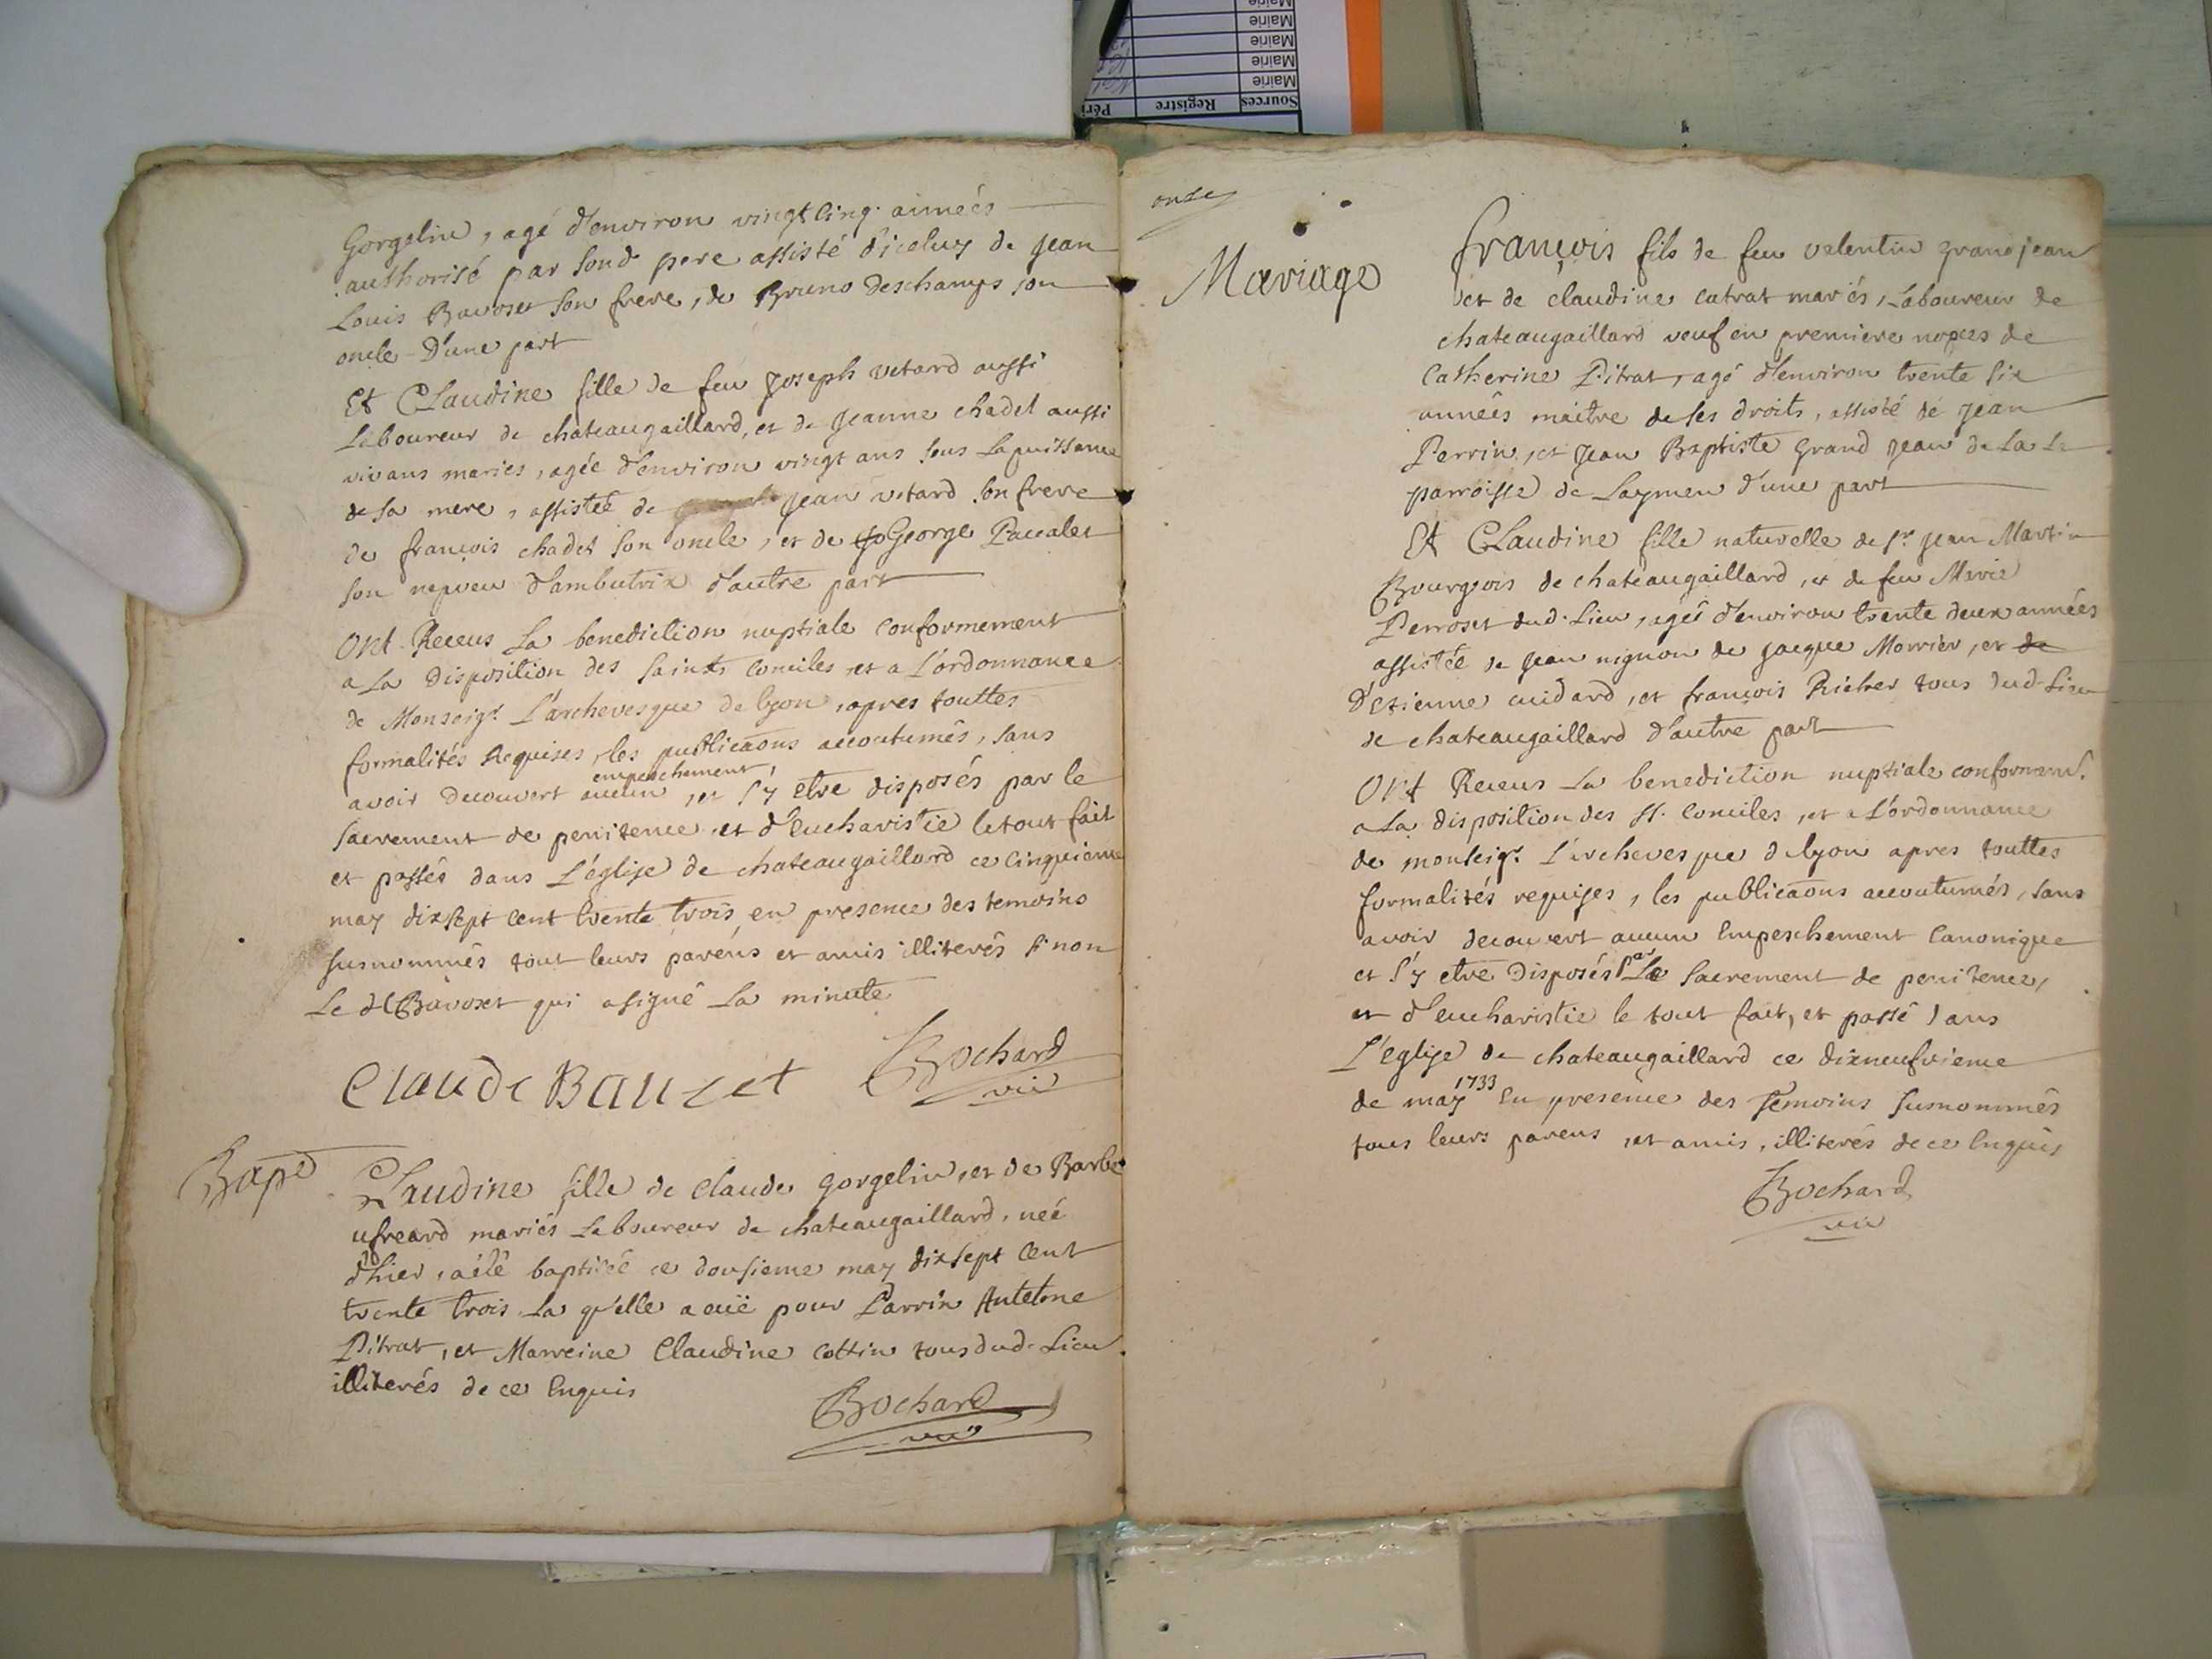 Gorgelin, agé d'environ vingt cinq années
authorisé par sond pere assisté d'iceluy de jean
Louis Bavoset son frere, de Bruno deschamps son
oncle d'une part
Et Claudine fille de feu joseph vetard aussi
laboureur de chateaugaillard, et de jeanne chadel aussi
vivans mariés, agée d'environ vingt ans sous la puissance
de sa mere, assistée de jean vetard son frere
de françois chadel son oncle, et de George Paccalet
son nepveu d'ambutrix d'autre part
Ont Receus la benediction nuptiale conformement
a la disposition des saints conciles et a l'ordonnance
de Monseigr. L'archevesque de lyon, apres touttes
formalités Requises, les publicaons accoutumés, sans
avoir decouvert aucun empeschement, et s'y etre disposés par le
sacrement de penitence, et d'eucharistie le tout fait
et passés dans L'église de chateaugaillard ce cinquieme
may dixsept cent trente trois en presence des temoins
susnommés tout leurs parens et amis illiterés sinon
Le dt Bavoset qui a signé la minute
Claude Bauzet Bochard
vic
Bapt
Claudine fille de claude gorgelin, et de Barbe
ufreard mariés laboureur de chateaugaillard, neé
d'hier, a été baptiseé ce dousieme may dixsept cent
trente trois la qu'elle a euë pour Parrin Antelme
Pitrat, et Marreine Claudine cottin tous dud. Lieu
illiterés de ce Enquis
Bochard
vic
onze
Mariage
françois fils de feu valentin grand jean
et de claudine catrat mariés, Laboureur de
chateaugaillard veuf en premiere nopces de
Catherine Pitrat, agé d'environ trente six
années maitre de ses droits, assisté de jean
Perrin, et jean Baptiste grand jean de la
parroisse de Laymen d'une part
Et Claudine fille naturelle de sr. jean Martin
Bourgeois de chateaugaillard, et de feu Marie
Perroset dud. Lieu, agée d'environ trente deux années
assistée de jean nignon de jacque Morrier, et de
d'etienne cuidard, et françois Richer tous dud. Lieu
de chateaugaillard d'autre part
Ont Receus la benediction nuptiale conformemt.
a la disposition des st. conciles, et a l'ordonnance
de monseigr. L'archevesque de lyon apres touttes
formalités requises, les publicaons accoutumés, sans
avoir decouvert aucun Empeschement Canonique
et s'y etre Disposés par Le sacrement de penitence,
et d'eucharistie le tout fait, et passé dans
L'eglise de chateaugaillard ce dixneufvieme
de may 1733 En presence des Temoins susnommés
tous leurs parens, et amis, illiterés de ce Enquis
Bochard
vic
Sources Registre Péri
Mairie
Mairie
Mairie
Mairie
Mairie